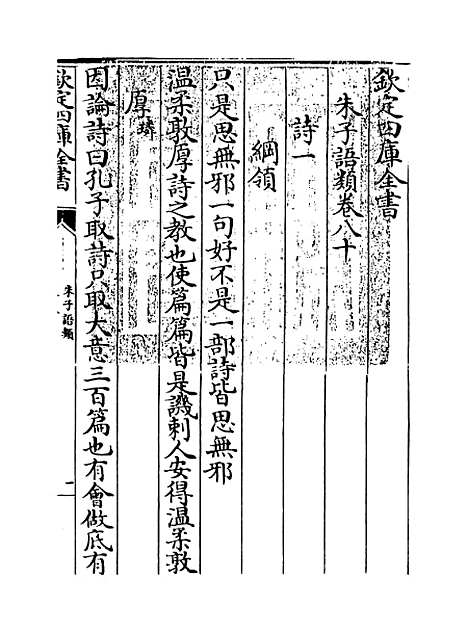 欽定四庫全書
朱子語類卷八十
詩一
綱領
只是思無邪一句好不是一部詩皆思無邪
温柔敦厚詩之教也使篇篇皆是譏刺人安得温柔敦
厚璘
因論詩曰孔子取詩只取大意三百篇也有會做底有
欽定四庫全書
朱子語類